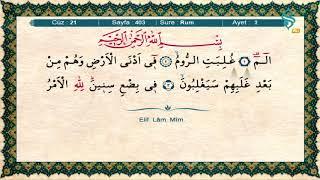 Cüz : 21 Sayfa : 403 Sure : Rum Ayet : 3
بِسْمِ اللّٰهِ الرَّحْمٰنِ الرَّحِيمِ
الٓمٓ ﴿١﴾ غُلِبَتِ الرُّومُ ﴿٢﴾ فِٓى اَدْنَى الْاَرْضِ وَهُمْ مِنْ
بَعْدِ غَلَبِهِمْ سَيَغْلِبُونَ ﴿٣﴾ فِى بِضْعِ سِنِينَ لِلّٰهِ الْاَمْرُ
Elif Lâm Mîm.